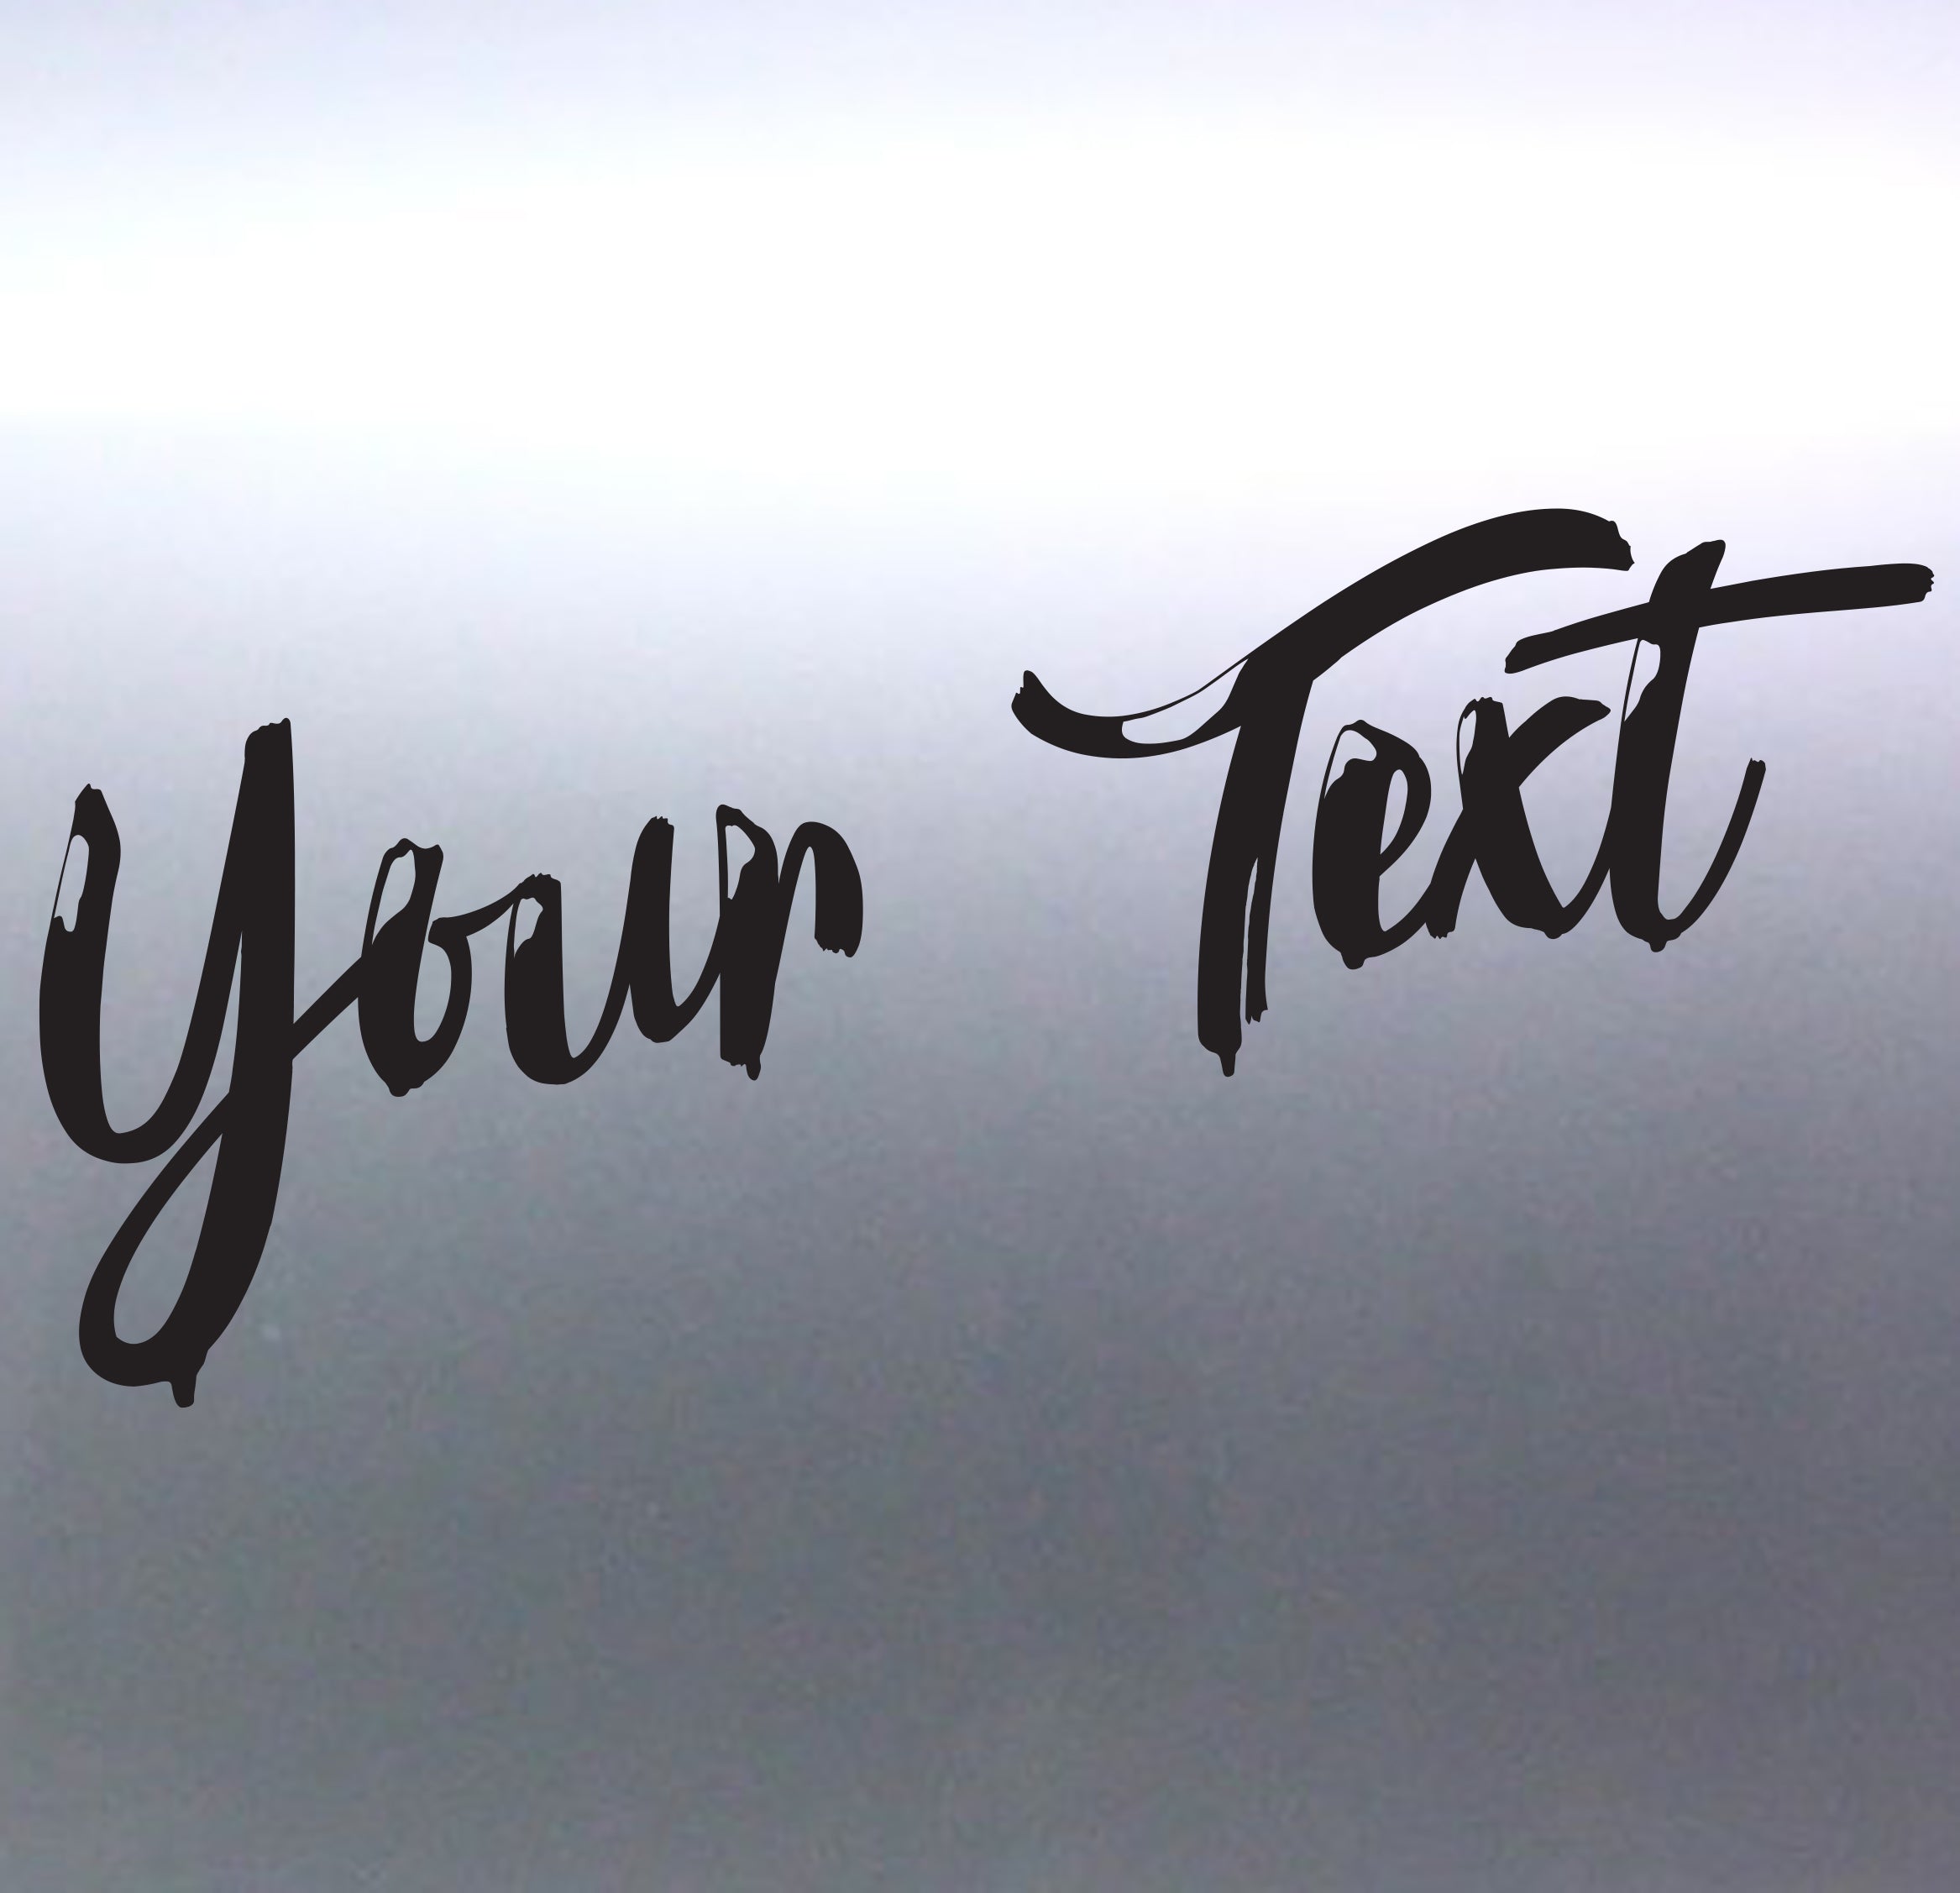 your Text